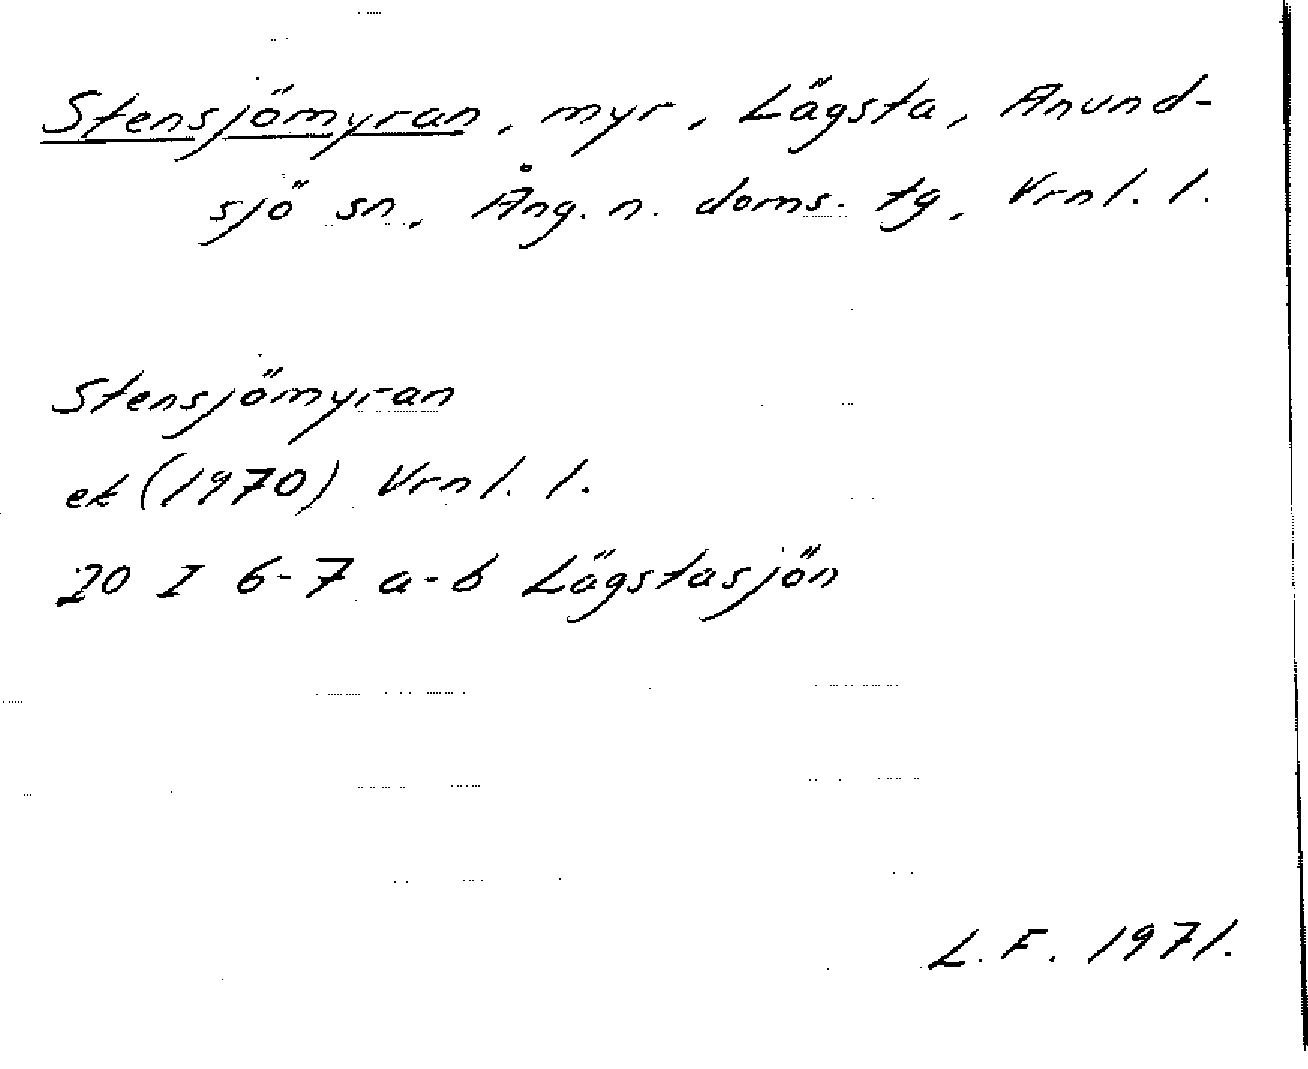 Stensjömyran, myr, Lägsta, Anund-
sjö sn, Ång. n. doms. tg, Vrnl. l.
Stensjömyran
ek (1970) Vrnl. l.
20 I 6-7 a-b Lägstasjön
L. F. 1971.